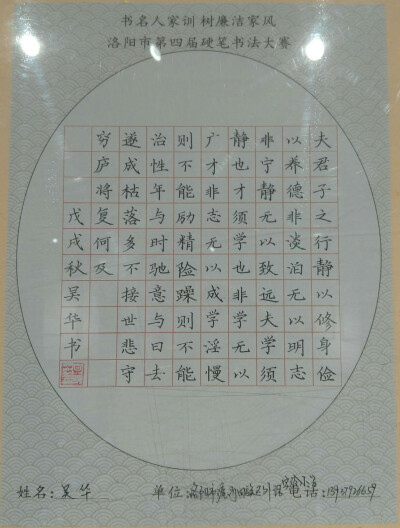 书名人家训 树廉洁家风
洛阳市第四届硬笔书法大赛
夫君子之行静以修身俭
以养德非淡泊无以明志
非宁静无以致远夫学须
静也才须学也非学无以
广才非志无以成学淫慢
则不能励精险躁则不能
治性年与时驰意与日去
遂成枯落多不接世悲守
穷庐将复何及
戊戌秋吴华书
姓名:吴华 单位: 电话: